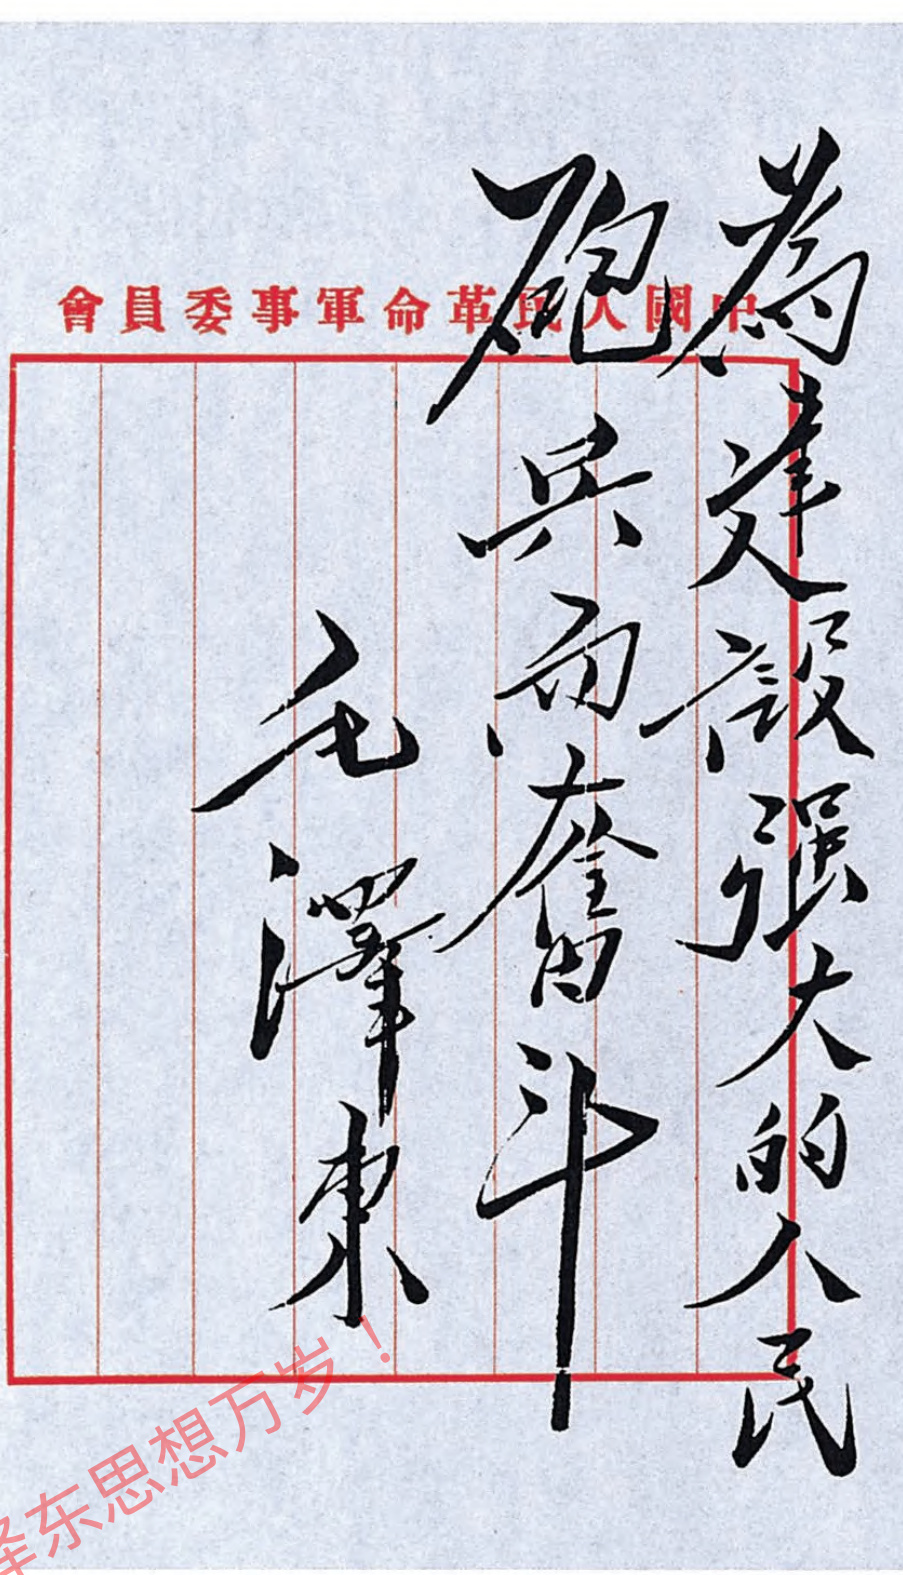 中國人民革命軍事委員會
為建設强大的人民
砲兵而奮斗
毛澤東
泽东思想万岁！